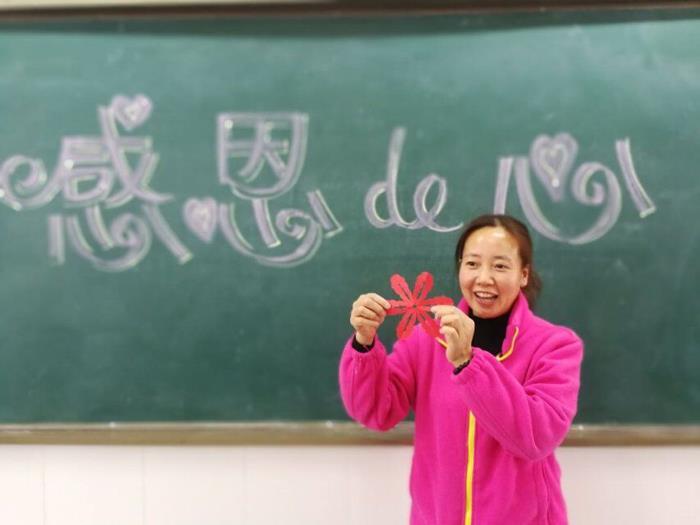 感恩de心